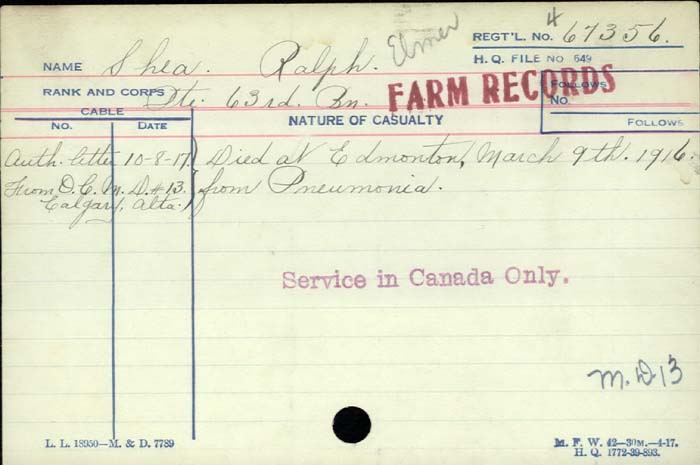 REGT'L. No. 467356.
NAME Shea. Ralph. Elmer
H. Q. FILE NO 649
RANK AND CORPS Pte. 63rd. Bn. FARM RECORDS
FOLLOWS
No.
CABLE
NATURE OF CASUALTY
FOLLOWS
NO. DATE
Auth. letter 10-8-17 Died at Edmonton, March 9th. 1916.
From O.C. M.D. #13. from Pneumonia.
Calgary, Alta.
Service in Canada Only.
M.D.13
L. L. 18950—M. & D. 7789
M. F. W. 42—30M.—4-17.
H. Q. 1772-39-893.